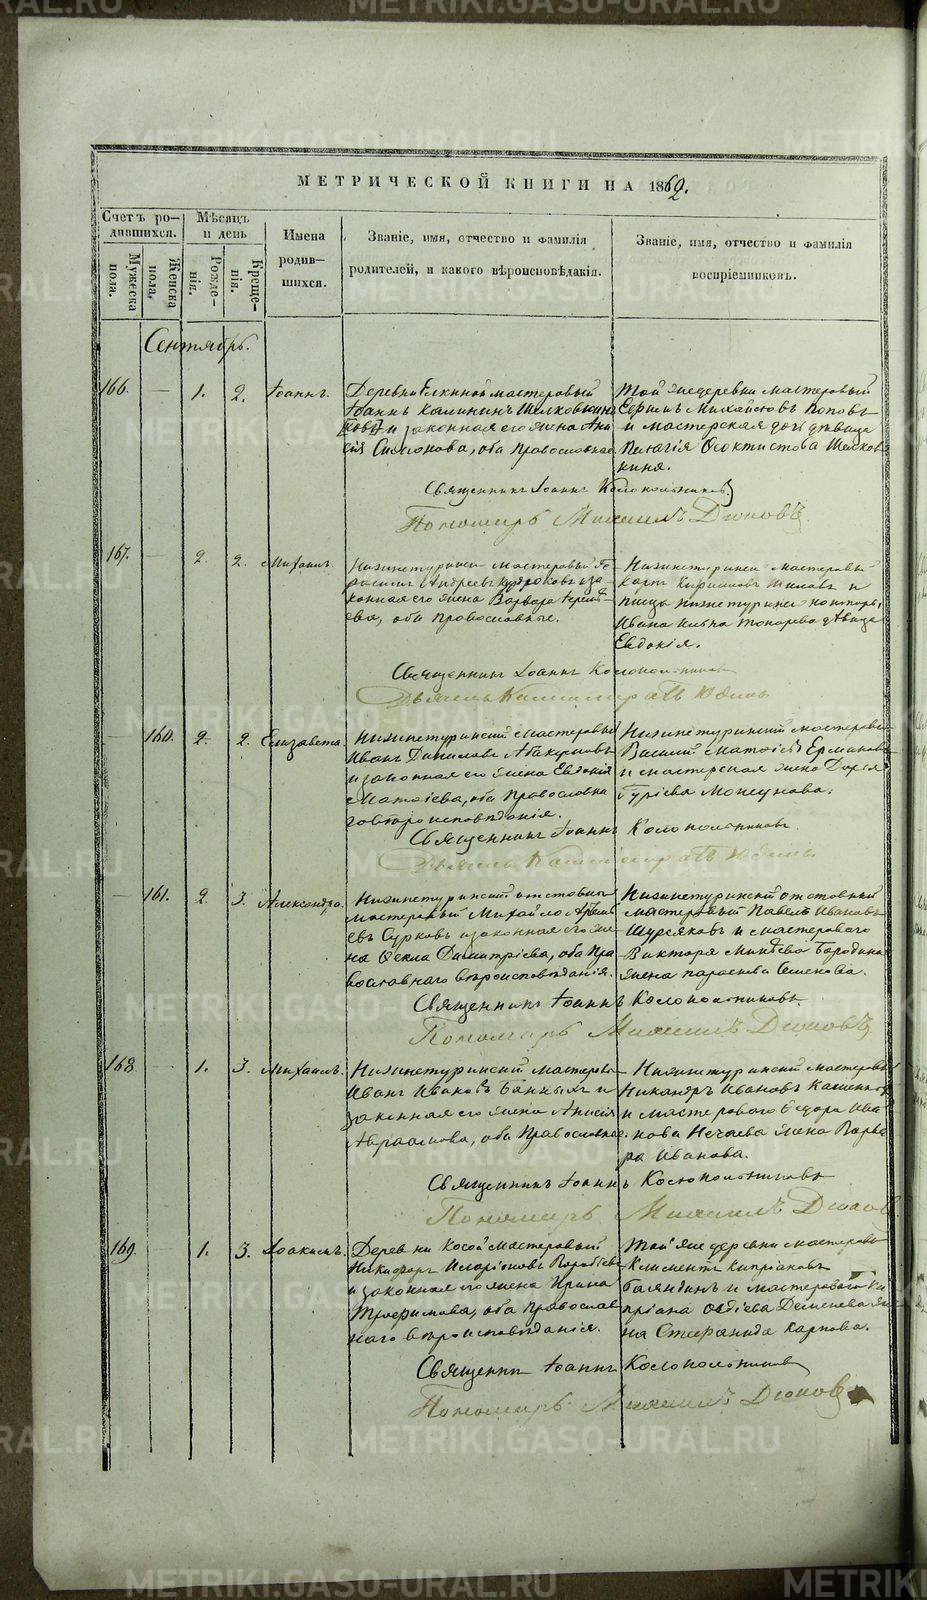 МЕТРИЧЕСКОЙ КНИГИ НА 1862.
Счетъ ро-
дившихся.
Мужеска
пола.
Женска
пола.
Мѣсяцъ
и день
Рожде-
нія.
Креще-
нія.
Имена
родив-
шихся.
Званіе, имя, отчество и фамилія
родителей, и какого вѣроисповѣданія.
Званіе, имя, отчество и фамилія
воспріемниковъ.
Сентябрь.
166. — 1. 2. Іоаннъ.
Деревни Елкиной мастеровый
Іоаннъ Калининъ
и законная его жена Ани
сія Симонова, оба Православные
Той же деревни мастеровый
Михайловъ Поповъ
и мастерская дочь девица
Пелагія Феоктистова Шелков
кина.
Священникъ Іоаннъ Колокольниковъ
Пономарь Михаилъ Дюковъ
167. — 2. 2. Михаилъ.
Нижнетурински мастеровый Ге
расимъ Андреевъ и за
конная его жена Варвара
ева, оба православные.
Нижнетурински мастеровый
Кирилловъ и
писца Нижнетуринск конторы,
Ивана Ильина Токарева дѣвица
Евдокія.
Священникъ Іоаннъ Колокольниковъ
— 160. 2. 2. Елизавета.
Нижнетуринскій мастеровый
Иванъ Даниловъ Абакумовъ
и законная его жена Евдокія
Матвіева, оба Православна
го вѣроисповѣданія.
Нижнетуринскій мастеровый
Василій Матвіевъ Ермаковъ
и мастерская жена Дарія
Гуріева
Священникъ Іоаннъ Колокольниковъ
— 161. 2. 3. Александра.
Нижнетуринскій отставный
мастеровый Михайло
евъ Сурковъ и законная его же
на Фекла Димитріева, оба Пра
вославнаго вѣроисповѣданія.
Нижнетуринскій отставный
мастеровый Павелъ Ивановъ
и мастероваго
Виктора Бородина
жена Параскева Семенова.
Священникъ Іоаннъ Колокольниковъ
Пономарь Михаилъ Дюковъ
168. — 1. 3. Михаилъ.
Нижнетуринскій мастеровый
Иванъ Ивановъ Банныхъ и
законная его жена Анисія
Авраамова, оба Православные.
Нижнетуринскій мастеровый
Никандръ Ивановъ
и мастероваго Федора Ива
нова Нечаева жена Варва
ра Иванова.
Священникъ Іоаннъ Колокольниковъ
Пономарь Михаилъ Дюковъ
169. — 1. 3. Іоакимъ.
Деревни Косой мастеровый
Никифоръ Иларіоновъ Воробьевъ
и законная его жена Ирина
Трофимова, оба православ
наго вѣроисповѣданія.
Той же деревни мастеровый
Климентъ Кипріановъ
и мастероваго Ки
пріана Деменева же
на Стефанида Карпова.
Священникъ Іоаннъ Колокольниковъ
Пономарь Михаилъ Дюковъ
METRIKI.GASO-URAL.RU